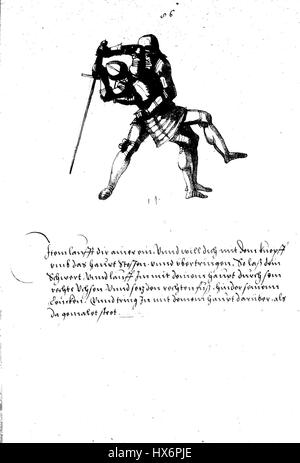 86
Item laufft dir ainer ein. Vnnd will dich mit dem knopff
vmb das haupt stossen. vnnd vbertringen. So lass dein
Schwert. Vnnd lauff Im mit deinem haupt durch sein
rechte Vchsen. Vnnd setz den rechten fuß. hinder seinen
Lincken. Vnnd tring In mit deinem haupt darüber. als
da gemalet steet.
alamy stock photo